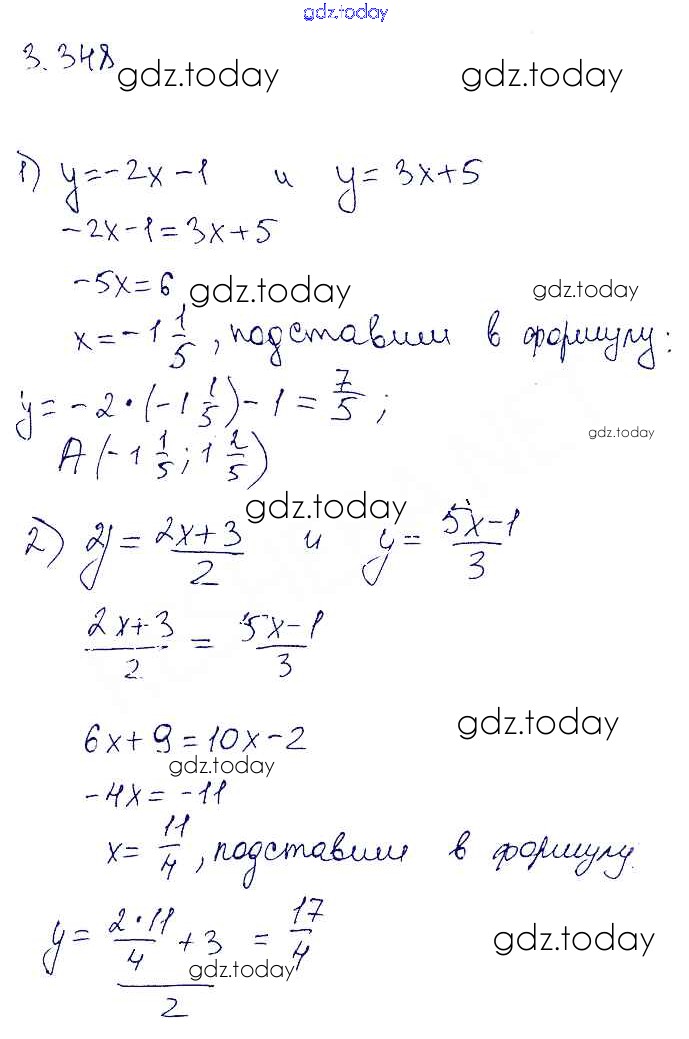 gdz.today
3.348 gdz.today gdz.today
1) y=-2x-1 и y=3x+5
-2x-1=3x+5
-5x=6 gdz.today gdz.today
x=-1 1/5, подставим в формулу:
y=-2·(-1 1/5)-1=7/5;
gdz.today
A(-1 1/5; 1 2/5)
gdz.today
2) y=(2x+3)/2 и y=(5x-1)/3
(2x+3)/2=(5x-1)/3
gdz.today
6x+9=10x-2
gdz.today
-4x=-11
x=11/4, подставим в формулу
y=((2·11)/4+3)/2=17/4
gdz.today gdz.today